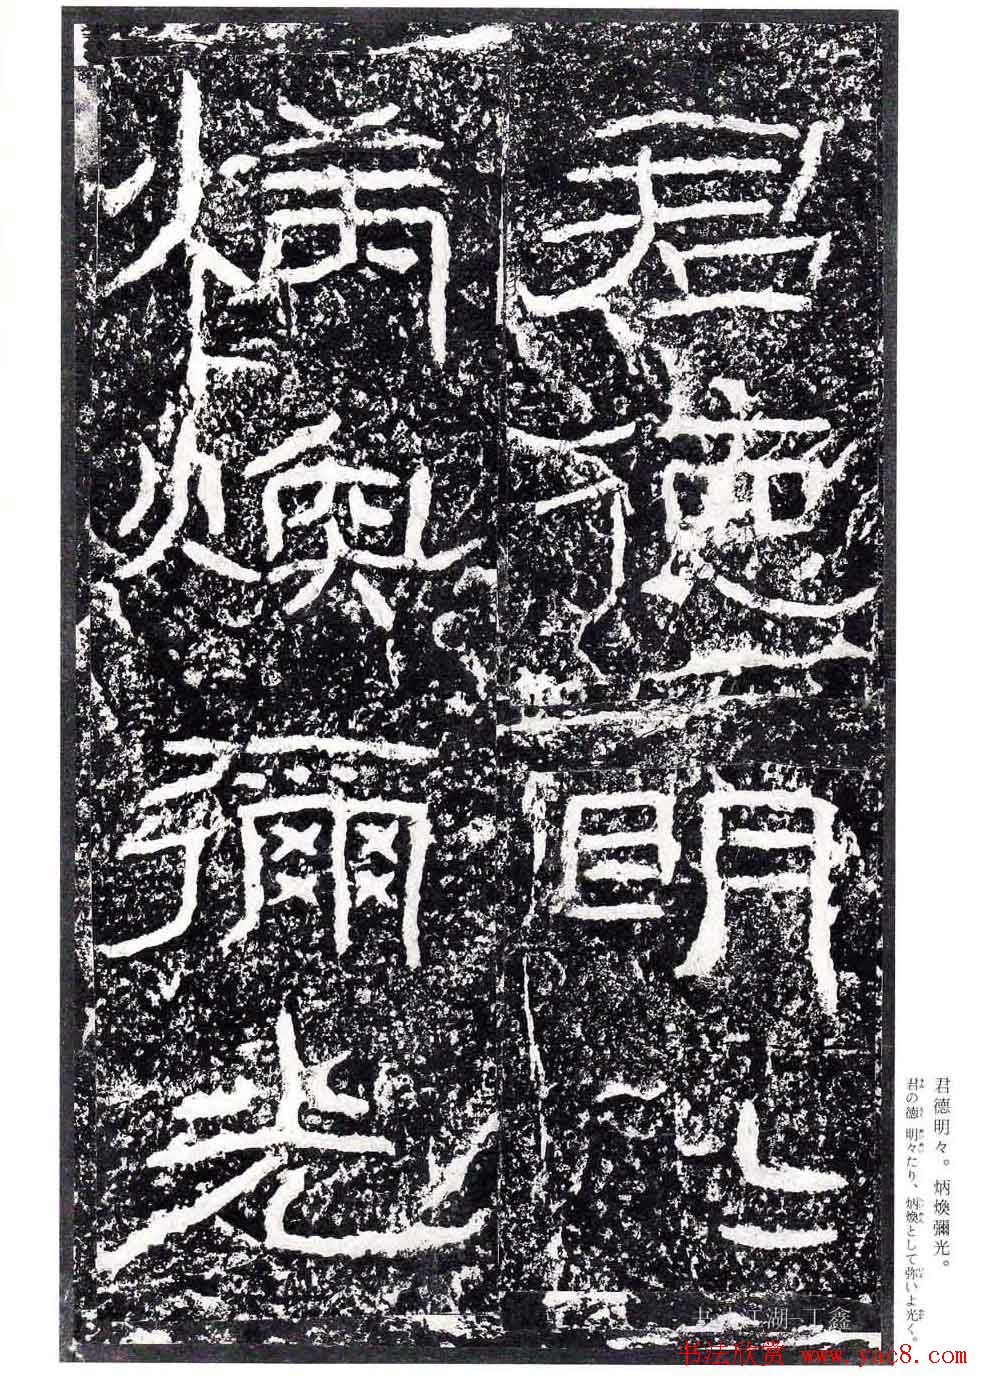 君德明〻
炳煥彌光
君德明々。炳煥彌光。
君の德 明々たり、炳煥として弥いよ光く。
江湖-丁鑫
书法欣赏 www.yac8.com